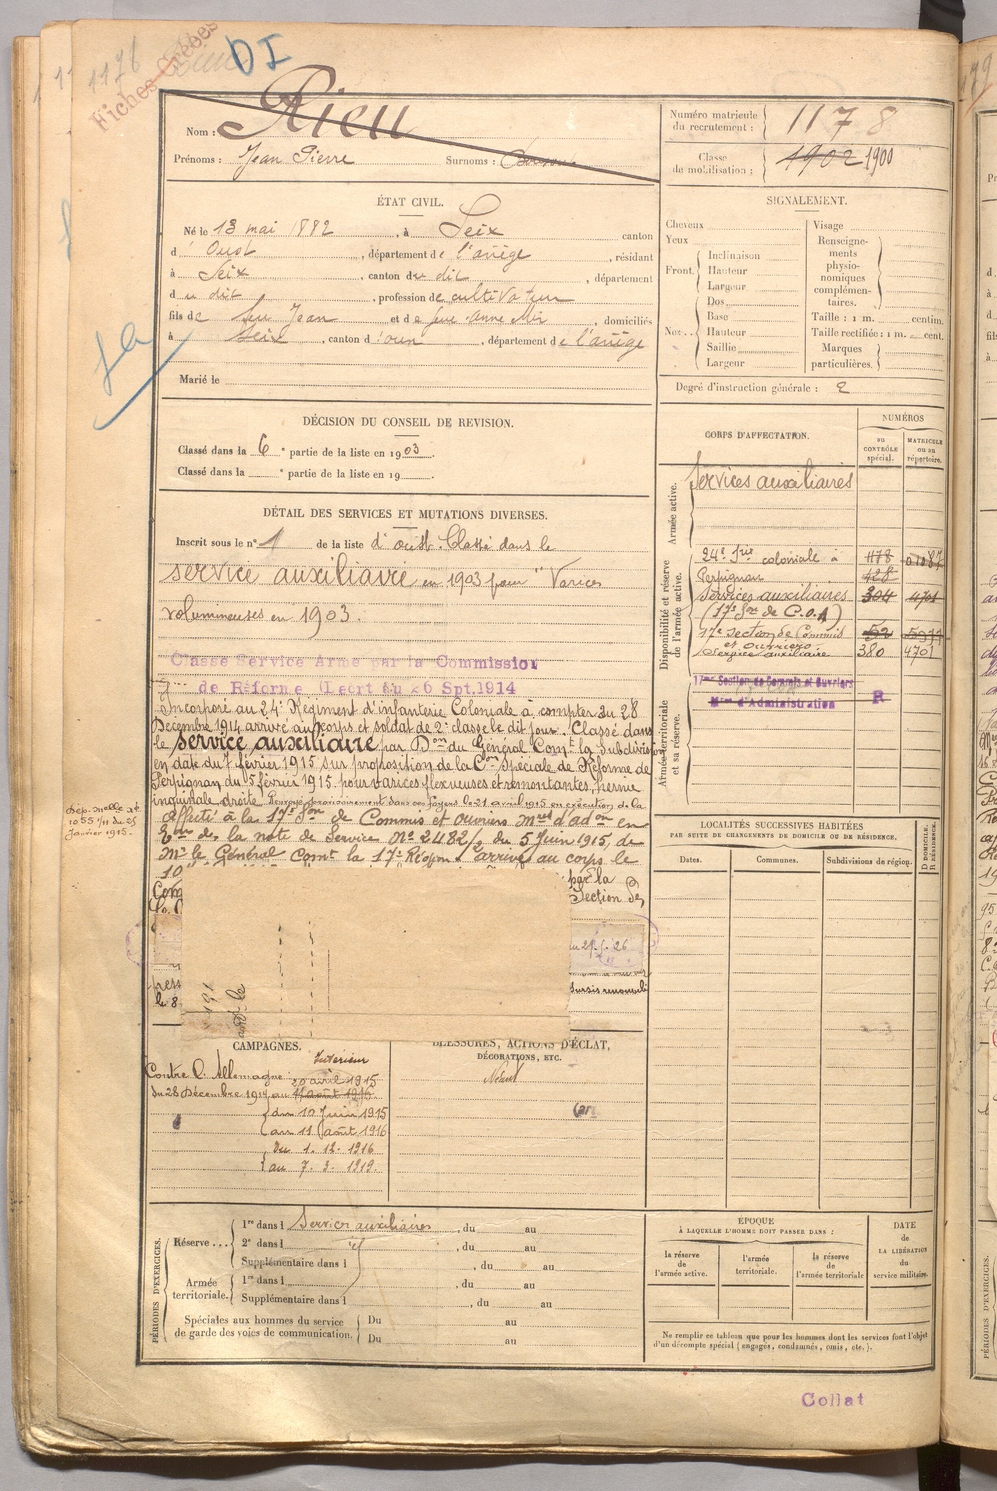 1176
DI
Fiches Créées
Nom : Rieu
Prénoms : Jean Pierre Surnoms :
Numéro matricule du recrutement : 1178
Classe de mobilisation : 1902 1900
ÉTAT CIVIL.
Né le 13 mai 1882, à Seix canton
d'Oust, département de l'ariège, résidant
à Seix, canton du dit, département
du dit, profession de cultivateur
fils de feu Jean et de feue Anne Mir, domiciliés
à Seix, canton d'oust, département de l'ariège
Marié le
SIGNALEMENT.
Cheveux
Yeux
Front. Inclinaison
Hauteur
Largeur
Nez... Dos
Base
Hauteur
Saillie
Largeur
Visage
Renseignements physionomiques complémentaires.
Taille : 1 m. centim.
Taille rectifiée : 1 m. cent.
Marques particulières.
Degré d'instruction générale : 2
DÉCISION DU CONSEIL DE REVISION.
Classé dans la 6e partie de la liste en 1903.
Classé dans la e partie de la liste en 19
DÉTAIL DES SERVICES ET MUTATIONS DIVERSES.
Inscrit sous le n° 1 de la liste d'oust. Classé dans le
service auxiliaire en 1903 pour "Varices
volumineuses en 1903.
Classé Service Armé par la Commission
de Réforme (Décret du 26 Spt. 1914
Incorporé au 24e Régiment d'infanterie Coloniale à compter du 28
Décembre 1914 arrivé au corps et soldat de 2e classe le dit jour. Classé dans
le service auxiliaire par Don du Général Comt la Subdivision
en date du 7 février 1915 sur proposition de la Con Spéciale de Réforme de
Perpignan du 5 février 1915 pour varices flexueuses et remontantes, hernie
inguinale droite. Renvoyé provisoirement dans ses foyers le 21 avril 1915 en exécution de la
Dép. melle
1055 1/11 du 25
Janvier 1915.
Affecté à la 17e Son de Commis et Ouvriers Mres d'adon en
Eon de la note de Service N° 2482/2 du 5 Juin 1915, de
Mr le Général Comt la 17e Région arrivé au corps le
10
par la
Com
Section de
du 21.1.26
press
le 8
Sursis renouvelé
191
CORPS D'AFFECTATION.
NUMÉROS
au CONTRÔLE spécial.
MATRICULE ou au répertoire.
Armée active.
Services auxiliaires
Disponibilité et réserve de l'armée active.
24e Irie coloniale à 1178
Perpignan 428
Services auxiliaires 304 4701
(17e Son de C.O.A)
17e section de Commis 52
et ouvriers.
Service auxiliaire 380 4701
Armée territoriale et sa réserve.
17me Section de Commis et Ouvriers
Mres d'Administration R
LOCALITÉS SUCCESSIVES HABITÉES
PAR SUITE DE CHANGEMENTS DE DOMICILE OU DE RÉSIDENCE.
Dates. Communes. Subdivisions de région. D DOMICILE. R RÉSIDENCE.
CAMPAGNES.
Intérieur
Contre l'Allemagne 20 avril 1915
du 28 Décembre 1914 au 11 août 1916
du 10 Juin 1915
au 11 août 1916
du 1. 12. 1916
au 7. 3. 1919.
BLESSURES, ACTIONS D'ÉCLAT,
DÉCORATIONS, ETC.
Néant
PÉRIODES D'EXERCICES.
Réserve... 1re dans l Services auxiliaires, du au
2e dans l, du au
Supplémentaire dans l, du au
Armée territoriale. 1re dans l, du au
Supplémentaire dans l, du au
Spéciales aux hommes du service de garde des voies de communication. Du au
Du au
ÉPOQUE
À LAQUELLE L'HOMME DOIT PASSER DANS :
la réserve de l'armée active.
l'armée territoriale.
la réserve de l'armée territoriale
DATE de LA LIBÉRATION du service militaire.
Ne remplir ce tableau que pour les hommes dont les services font l'objet
d'un décompte spécial (engagés, condamnés, omis, etc.).
Collat